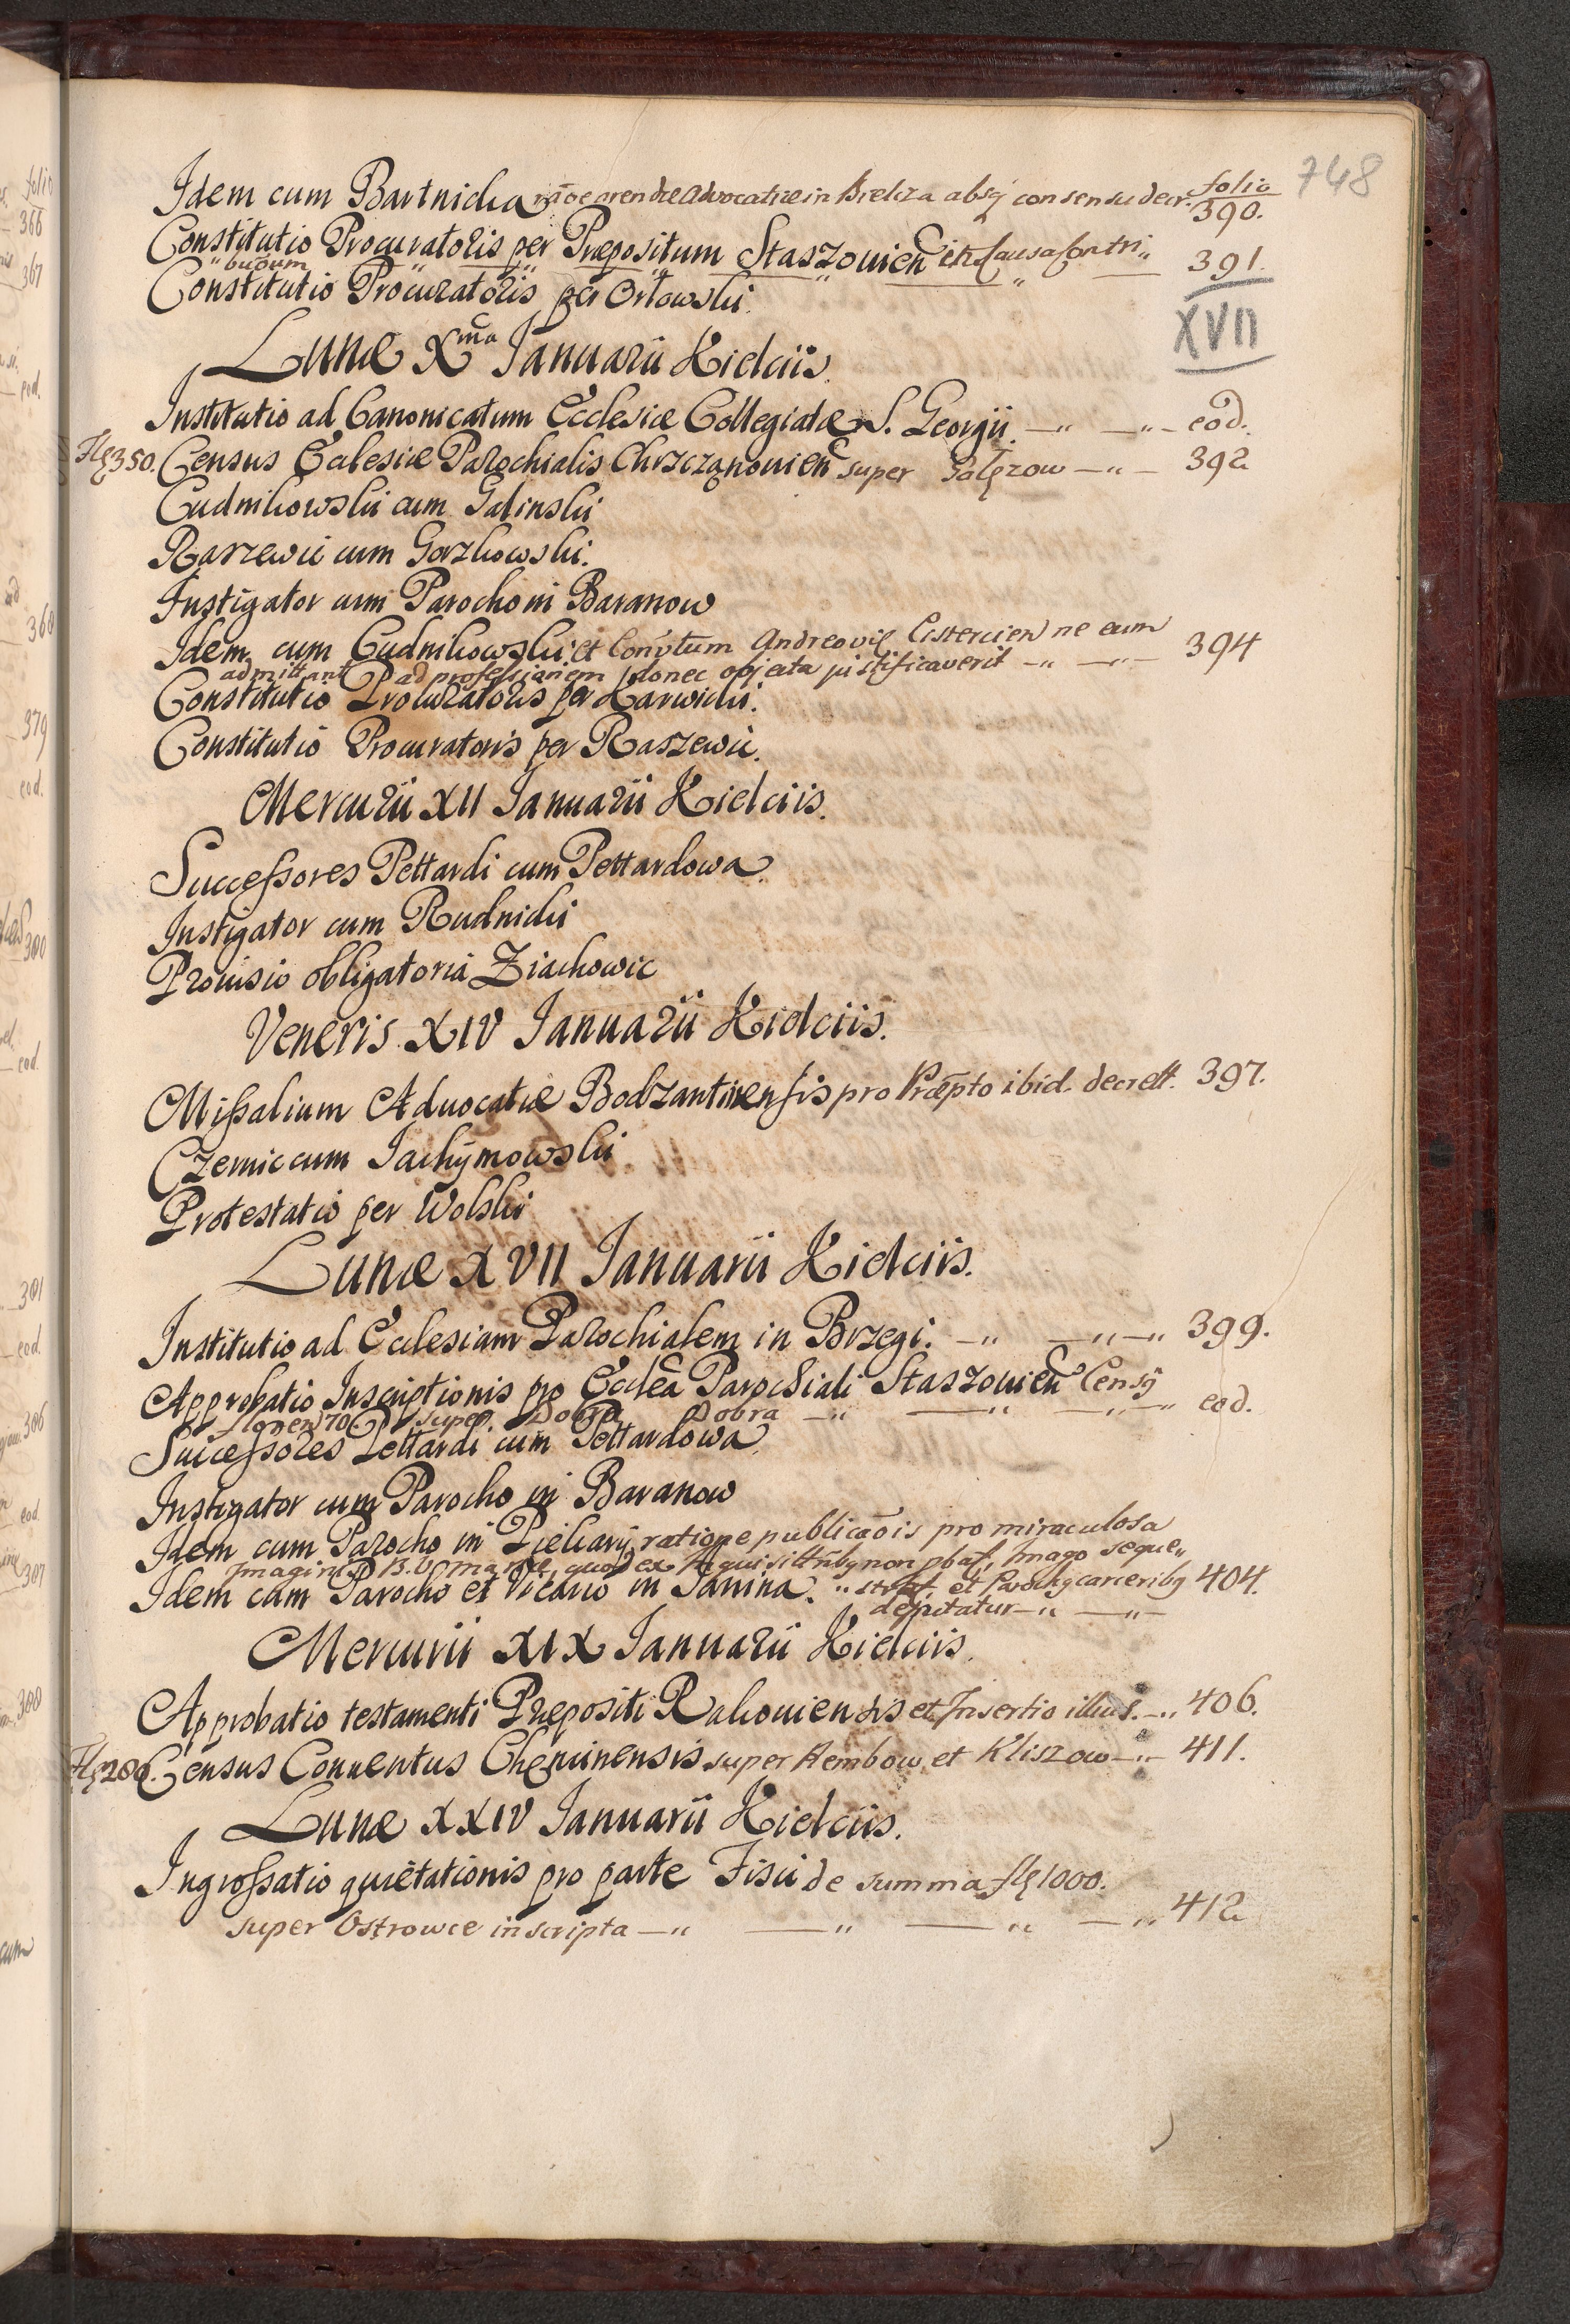 748
folio
Idem cum Bartnicka raõe arendæ Advocatiæ in Bieliza absq consensu decr. 390.
Constitutio Procuratoris per Præpositum Staszouien in Causa Contri„ 391.
„buõum
Constitutio Procuratoris per Orłowski.
XVII
Lunæ Xma Januarii Kielciis.
Institutio ad Canonicatum Ecclesiæ Collegiatæ S. Georgii. —„ —„— eod.
Flę 350. Census Ecclesiæ Parochialis Chrszczanouien super Gałęzow —„— 392
Cudnikowski cum Galinski
Raszewic cum Gorzkowski.
Instigator cum Parocho in Baranow
Idem cum Cudnikowski et Convtum Andreovię Cistercien ne eum
admittant ad professionem donec objecta justificaverit —„ —„— 394
Constitutio Procuratoris per Karwicki.
Constitutio Procuratoris per Raszewic.
Mercurii XII Januarii Kielciis.
Successores Pettardi cum Pettardowa
Instigator cum Rudnicki
Prouisio obligatoria Ziachowic
Veneris XIV Januarii Kielciis.
Missalium Aduocatiæ Bodzantinensis pro Præpto ibid. decrett. 397.
Czernic cum Jachÿmowski
Protestatio per Wolski
Lunæ XVII Januarii Kielciis.
Institutio ad Ecclesiam Parochialem in Brzegi. —„ —„—„ 399.
Approbatio Inscriptionis pro Ecclea Parochiali Staszouien Censÿ
floren 70. super Dobra Dobra —„ —„ —„—„ eod.
Successores Pettardi cum Pettardowa
Instigator cum Parocho in Baranow
Idem cum Parocho in Piekarÿ ratione publicaõis pro miraculosa
Imaginis B.V. Mariæ, quod ex Inquisittnibq non pbat, Imago seque„
Idem cum Parocho et Vicario in Janina. „strat, et Parochq carceribq 404.
deputatur —„ —„—
Mercurii XIX Januarii Kielciis.
Approbatio testamenti Præpositi Rakouiensis et Insertio illius. —„ 406.
Flę 280. Census Conuentus Chęcinensis super Rembow et Kliszow —„— 411.
Lunæ XXIV Januarii Kielciis.
Ingrossatio quietationis pro parte Fisci de summa flę 1000.
super Ostrowce inscripta —„ —„ —„ —„ 412